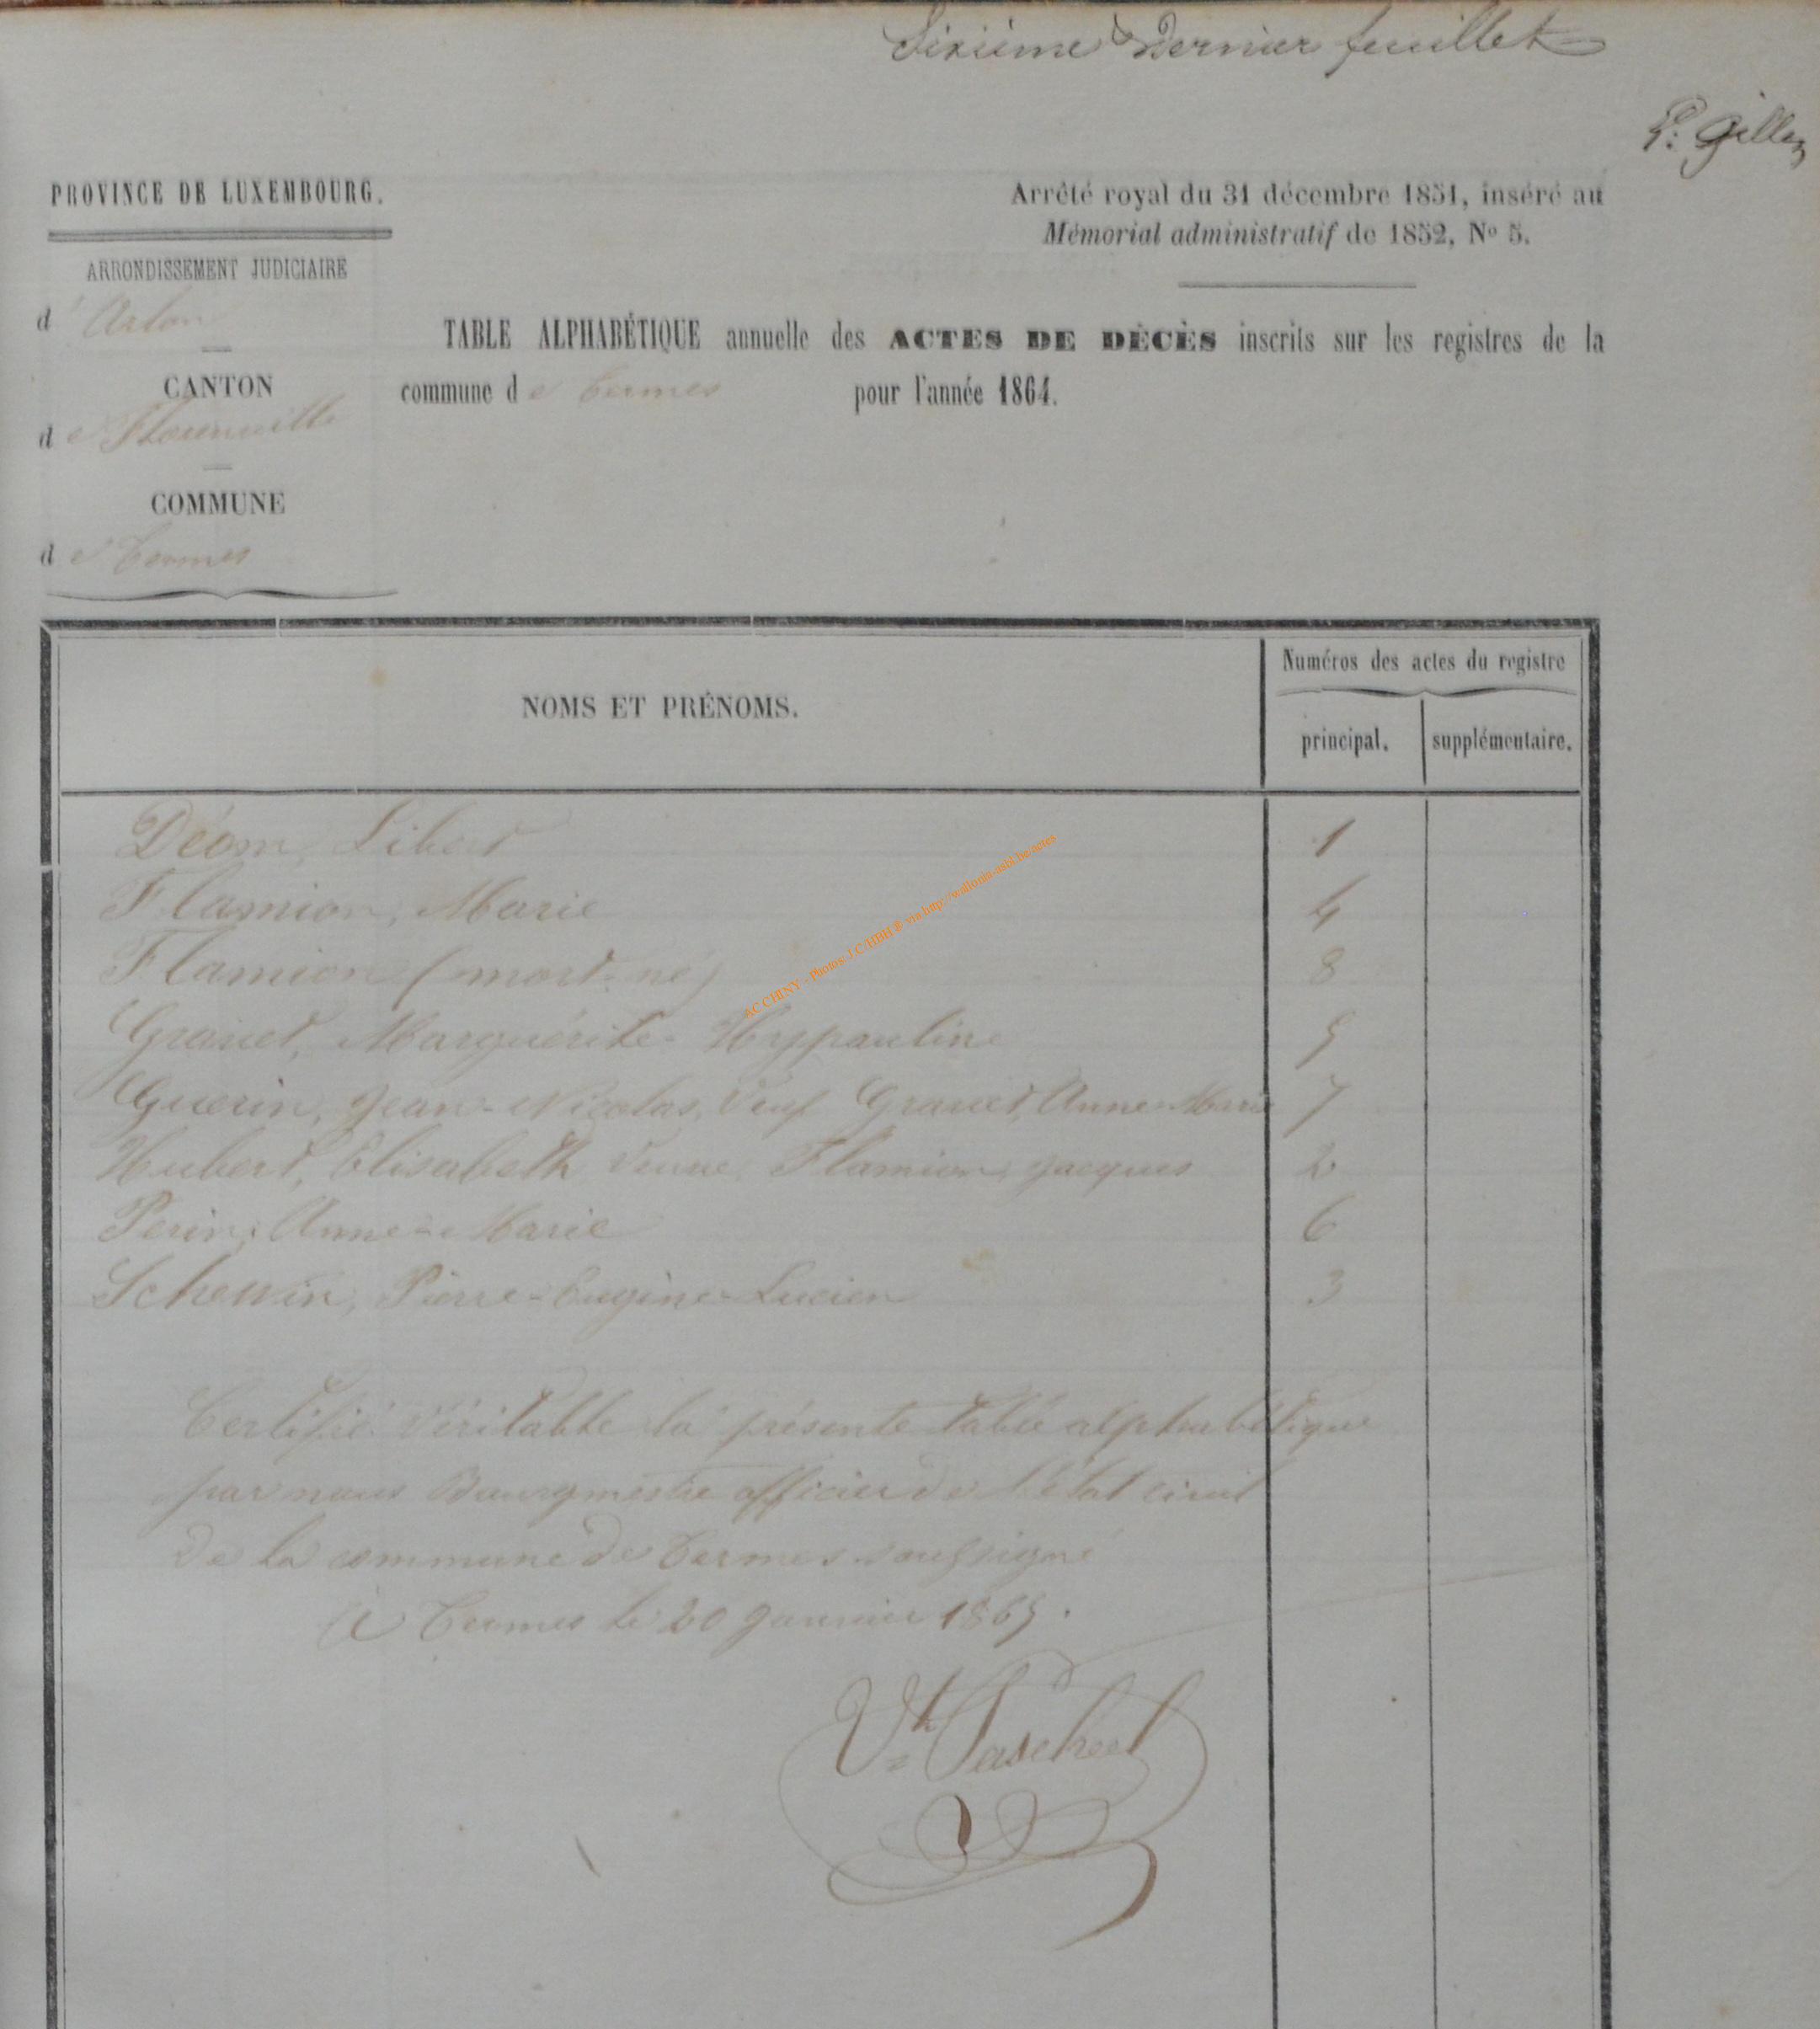 Sixième & Dernier feuillet
P. Gilles
PROVINCE DE LUXEMBOURG.
ARRONDISSEMENT JUDICIAIRE
d'Arlon
CANTON
de Florenville
COMMUNE
de Termes
Arrêté royal du 31 décembre 1851, inséré au
Mémorial administratif de 1852, No 5.
TABLE ALPHABÉTIQUE annuelle des ACTES DE DÉCÈS inscrits sur les registres de la
commune de Termes pour l'année 1864.
NOMS ET PRÉNOMS.
Numéros des actes du registre
principal. supplémentaire.
Déom, Libert 1
Flamion, Marie 4
Flamion (mort-né) 8
Graiset, Marguérite-Hyppauline 5
Guerin, Jean-Nicolas, Veuf Graiset, Anne-Marie 7
Hubert, Elisabeth Veuve Flamion, Jacques 2
Perin, Anne-Marie 6
Schewin, Pierre-Eugène-Lucien 3
Certifié véritable la présente table alphabétique
par nous Bourgmestre officier de l'état civil
de la commune de Termes soussigné
à Termes le 20 Janvier 1865.
Vh Paschal
AC CHINY - Photos J.C HBH ® via http://wallonia-asbl.be/actes